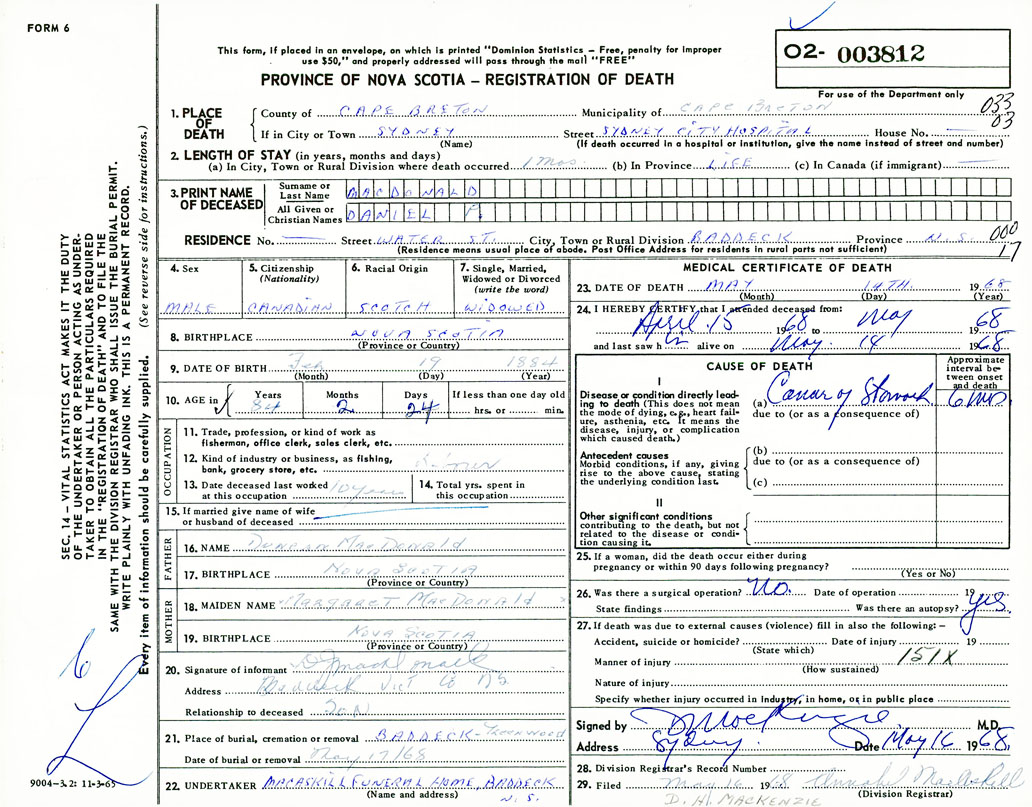 FORM 6
This form, if placed in an envelope, on which is printed "Dominion Statistics – Free, penalty for improper
use $50," and properly addressed will pass through the mail "FREE"
PROVINCE OF NOVA SCOTIA – REGISTRATION OF DEATH
02- 003812
For use of the Department only
033
03
1. PLACE OF DEATH
County of CAPE BRETON Municipality of CAPE BRETON
If in City or Town SYDNEY Street SYDNEY CITY HOSPITAL House No. —
(Name) (If death occurred in a hospital or institution, give the name instead of street and number)
2. LENGTH OF STAY (in years, months and days)
(a) In City, Town or Rural Division where death occurred 1 Mos. (b) In Province LIFE (c) In Canada (if immigrant) —
3. PRINT NAME OF DECEASED
Surname or Last Name MACDONALD
All Given or Christian Names DANIEL F.
000
17
RESIDENCE No. — Street WATER ST. City, Town or Rural Division BADDECK Province N.S.
(Residence means usual place of abode. Post Office Address for residents in rural parts not sufficient)
4. Sex
MALE
5. Citizenship
(Nationality)
CANADIAN
6. Racial Origin
SCOTCH
7. Single, Married,
Widowed or Divorced
(write the word)
WIDOWED
8. BIRTHPLACE NOVA SCOTIA
(Province or Country)
9. DATE OF BIRTH Feb 19 1884
(Month) (Day) (Year)
10. AGE in Years Months Days If less than one day old
84 2 24 hrs. or min.
OCCUPATION
11. Trade, profession, or kind of work as
fisherman, office clerk, sales clerk, etc.
12. Kind of industry or business, as fishing,
bank, grocery store, etc.
13. Date deceased last worked
at this occupation 10 years
14. Total yrs. spent in
this occupation
15. If married give name of wife
or husband of deceased
FATHER
16. NAME Duncan MacDonald
17. BIRTHPLACE NOVA SCOTIA
(Province or Country)
MOTHER
18. MAIDEN NAME MARGARET MACDONALD
19. BIRTHPLACE NOVA SCOTIA
(Province or Country)
20. Signature of informant
Address Baddeck Vict Co NS
Relationship to deceased SON
21. Place of burial, cremation or removal BADDECK-
Date of burial or removal May 17/68
22. UNDERTAKER MACASKILL FUNERAL HOME, BADDECK
(Name and address) N.S.
MEDICAL CERTIFICATE OF DEATH
23. DATE OF DEATH MAY 14TH. 1968
(Month) (Day) (Year)
24. I HEREBY CERTIFY that I attended deceased from:
April 15 1968 to May 68
and last saw h im alive on May 14 1968
CAUSE OF DEATH
Approximate
interval be-
tween onset
and death
I
Disease or condition directly lead-
ing to death (This does not mean
the mode of dying, e.g., heart fail-
ure, asthenia, etc. It means the
disease, injury, or complication
which caused death.)
(a) Cancer of Stomach 6 mos
due to (or as a consequence of)
Antecedent causes
Morbid conditions, if any, giving
rise to the above cause, stating
the underlying condition last.
(b)
due to (or as a consequence of)
(c)
II
Other significant conditions
contributing to the death, but not
related to the disease or condi-
tion causing it.
25. If a woman, did the death occur either during
pregnancy or within 90 days following pregnancy?
(Yes or No)
26. Was there a surgical operation? No. Date of operation 19
State findings Was there an autopsy? yes
27. If death was due to external causes (violence) fill in also the following: –
Accident, suicide or homicide? Date of injury 19
(State which)
Manner of injury 151X
(How sustained)
Nature of injury
Specify whether injury occurred in Industry, in home, or in public place
Signed by D MacKenzie M.D.
Address Sydney. Date May 16 1968.
28. Division Registrar's Record Number
29. Filed May 16 1968
D. H. MACKENZIE (Division Registrar)
SEC. 14 – VITAL STATISTICS ACT MAKES IT THE DUTY
OF THE UNDERTAKER OR PERSON ACTING AS UNDER-
TAKER TO OBTAIN ALL THE PARTICULARS REQUIRED
IN THE "REGISTRATION OF DEATH" AND TO FILE THE
SAME WITH THE DIVISION REGISTRAR WHO SHALL ISSUE THE BURIAL PERMIT.
WRITE PLAINLY WITH UNFADING INK. THIS IS A PERMANENT RECORD.
Every item of information should be carefully supplied. (See reverse side for instructions.)
9004–3.2: 11-3-65